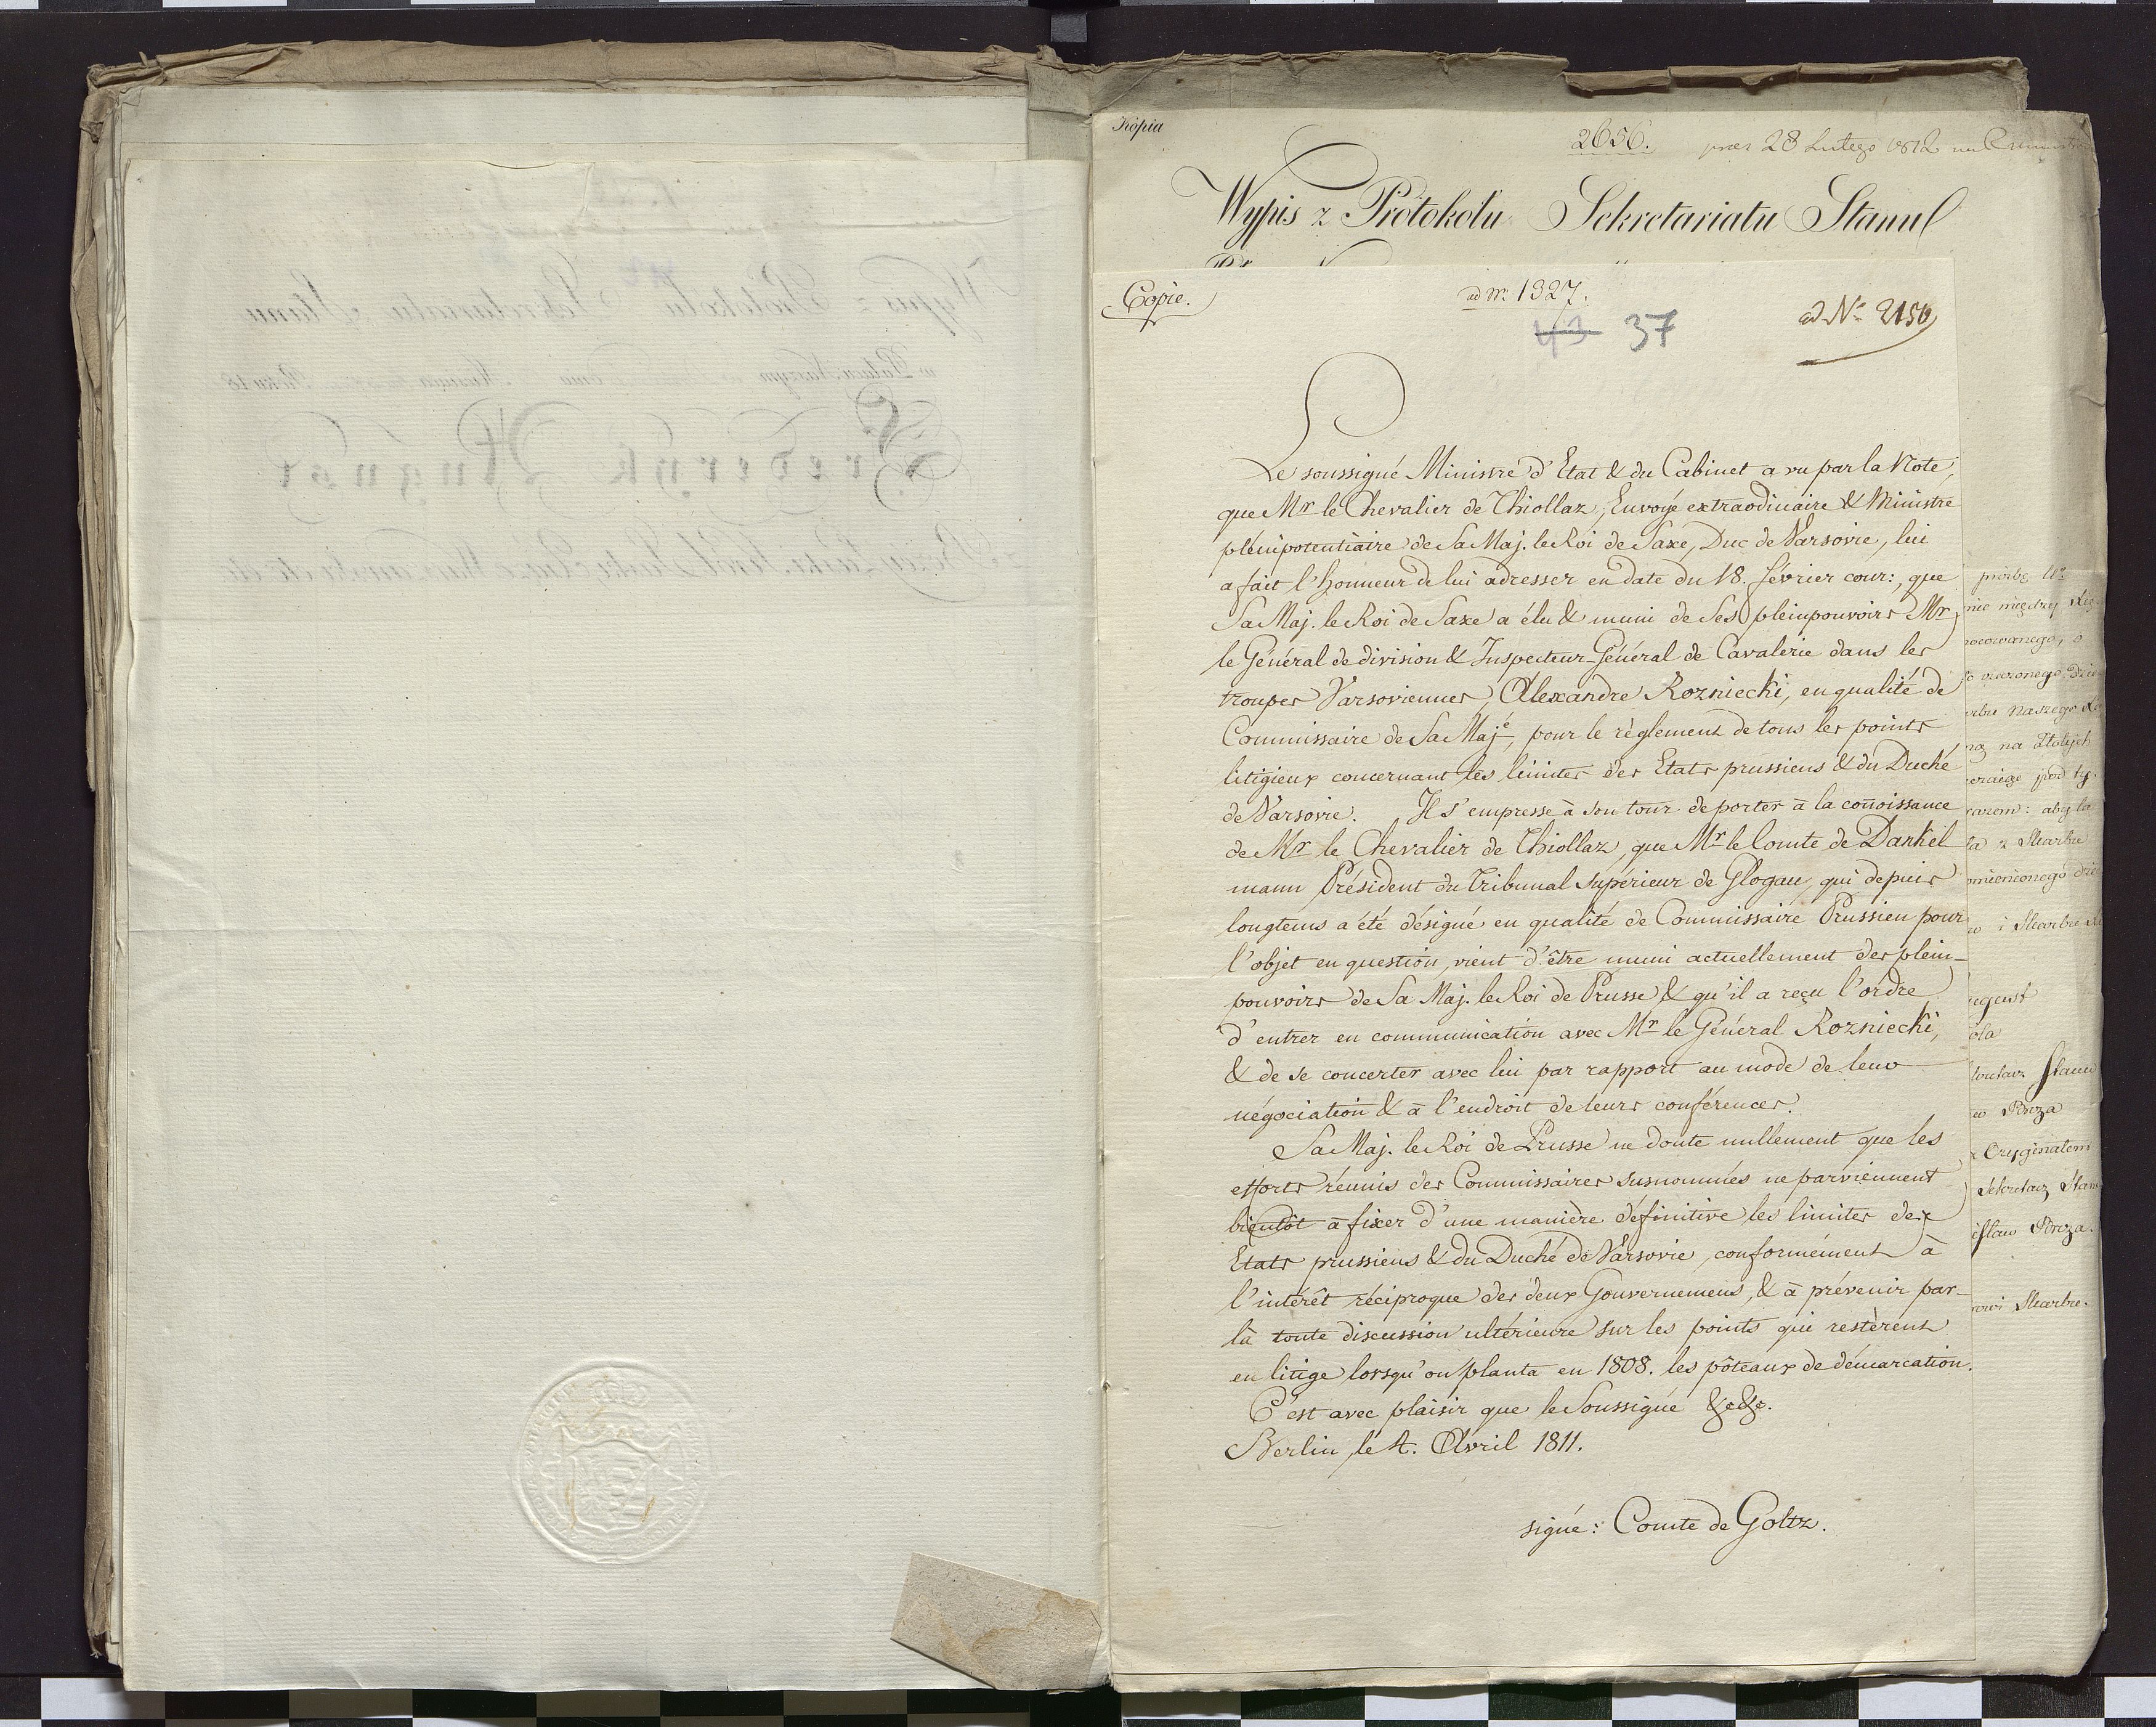 Kopia
2656.
28 Lutego 1812
Wypis z Protokołu Sekretariatu Stanu
Copie.
ad Nr. 1327.
43 37
ad No 2150
Le soussigné Ministre d'Etat & du Cabinet a vu par la Note,
que Mr le Chevalier de Thiollaz, Envoyé extraodinaire & Ministre
plénipotentiaire de Sa Maj. le Roi de Saxe, Duc de Varsovie, lui
a fait l'honneur de lui adresser en date du 18. février cour:, que
Sa Maj. le Roi de Saxe a élu & muni de Ses pleinpouvoirs Mr
le Général de division & Inspecteur-Général de Cavalerie dans les
troupes Varsoviennes, Alexandre Rozniecki, en qualité de
Commissaire de Sa Majé, pour le règlement de tous les points
litigieux concernant les limites des Etats prussiens & du Duché
de Varsovie. Il s'empresse à son tour de porter à la conoissance
de Mr le Chevalier de Thiollaz, que Mr le Comte de Dankel
mann Président du Tribunal supérieur de Glogau, qui depuis
longtems a été désigné en qualité de Commissaire Prussien pour
l'objet en question, vient d'être muni actuellement des plein-
pouvoirs de Sa Maj. le Roi de Prusse & qu'il a reçu l'ordre
d'entrer en communication avec Mr le Général Rozniecki,
& de se concerter avec lui par rapport au mode de leur
négociation & à l'endroit de leurs conférences.
Sa Maj. le Roi de Prusse ne doute nullement que les
efforts réunis des Commissaires susnommés ne parviennent
bientôt à fixer d'une manière définitive les limites des
Etats prussiens & du Duché de Varsovie, conformément à
l'intérêt réciproque des deux Gouvernemens, & à prévenir par-
là toute discussion ultérieure sur les points qui restèrent
en litige lorsqu'on planta en 1808. les pôteaux de démarcation.
C'est avec plaisir que le Soussigné &c&c.
Berlin, le 4. Avril 1811.
signé: Comte de Goltz.
nie między
naszego
na Złotych
pod ty
aby la
z Skarbu
i Skarbu
Stanu
Breza
z Oryginałem
Sekretarz Stanu
Breza.
Skarbu.